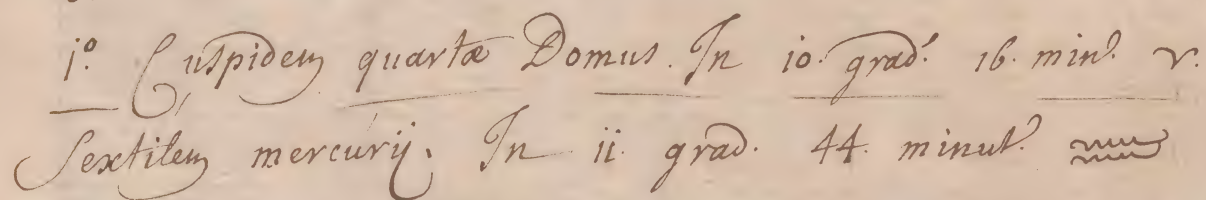 j.º Cuspidem quartæ Domus. In 10. grad. 16. min. ♈.
Sextilem mercurij. In ii. grad. 44. minut. ♒